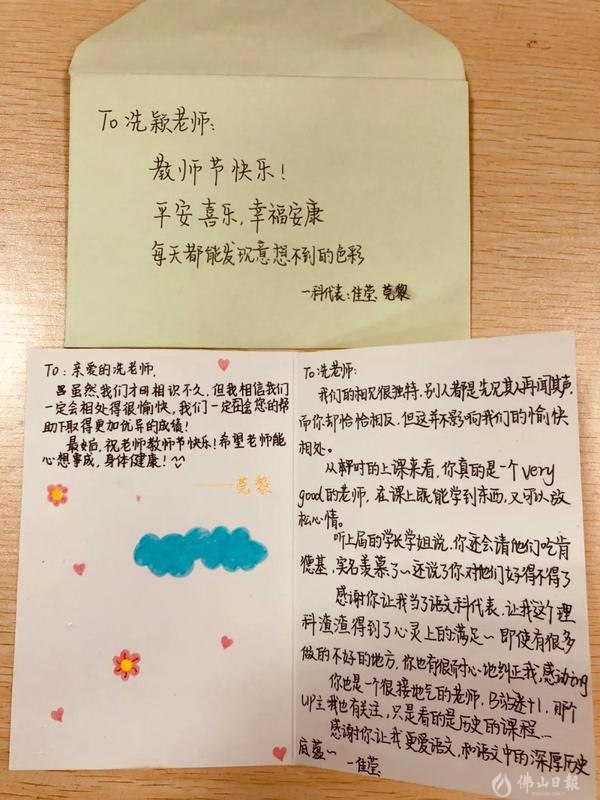 To 冼颖老师:
教师节快乐!
平安喜乐,幸福安康
每天都能发现意想不到的色彩
一科代表:佳莹 莞黎
To:亲爱的冼老师,
虽然我们才相识不久,但我相信我们
一定会相处得很愉快,我们一定会在您的帮
助下取得更加优异的成绩!
最后,祝老师教师节快乐!希望老师能
心想事成,身体健康!
——莞黎
To冼老师:
我们的相见很独特,别人都是先见其人再闻其声,
而你却恰恰相反,但这并不影响我们的愉快
相处。
从平时的上课来看,你真的是一个very
good的老师,在课上既能学到东西,又可以放
松心情。
听上届的学长学姐说,你还会请他们吃肯
德基,实名羡慕了~还说了你对他们好得不得了
感谢你让我当了语文科代表,让我这个理
科渣渣得到了心灵上的满足~即使有很多
做的不好的地方,你也有很耐心地纠正我,感动ing
你也是一个很接地气的老师,B站迷+1,那个
UP主我也有关注,只是看的是历史的课程...
感谢你让我更爱语文,和语文中的深厚历史
底蕴~ 一佳莹
佛山日報